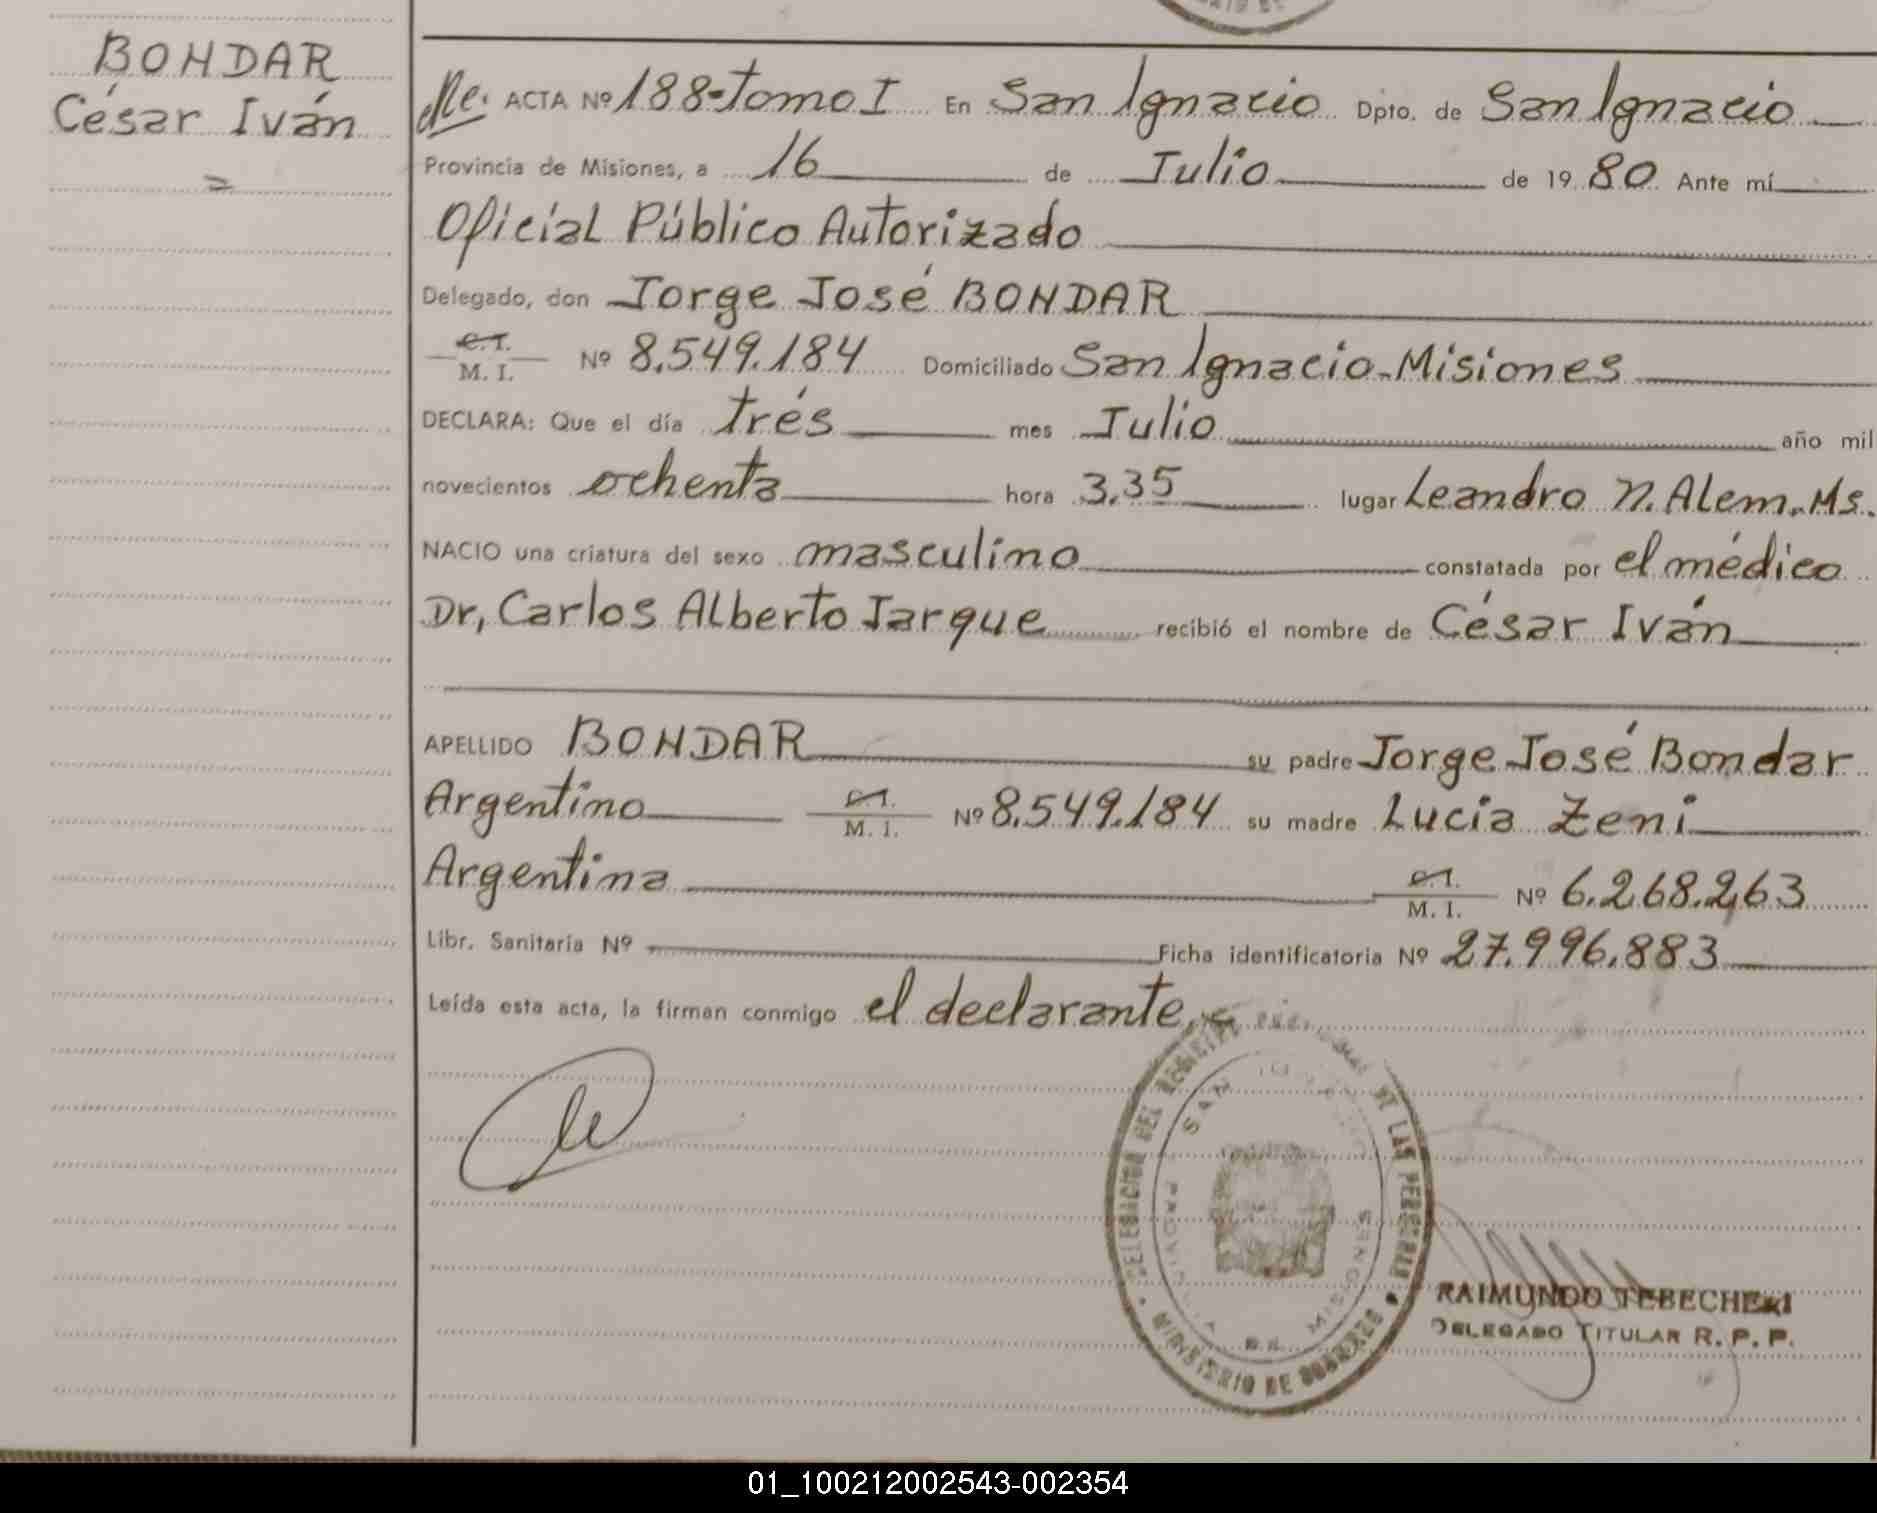 BONDAR
César Iván
ACTA Nº 188-Tomo I En San Ignacio Dpto. de San Ignacio
Provincia de Misiones, a 16 de Julio de 1980 Ante mí
Oficial Público Autorizado
Delegado, don Jorge José BONDAR
C.I.
M. I. Nº 8.549.184 Domiciliado San Ignacio-Misiones
DECLARA: Que el día trés mes Julio año mil
novecientos ochenta hora 3,35 lugar Leandro N. Alem.Ms.
NACIO una criatura del sexo masculino constatada por el médico
Dr, Carlos Alberto Jarque recibió el nombre de César Iván
APELLIDO BONDAR su padre Jorge José Bondar
Argentino C.I. M. I. Nº 8.549.184 su madre Lucia Zeni
Argentina C.I. M. I. Nº 6.268.263
Libr. Sanitaria Nº Ficha identificatoria Nº 27.996.883
Leída esta acta, la firman conmigo el declarante,
DELEGACION DEL REGISTRO DE LAS PERSONAS
SAN IGNACIO
PROVINCIA DE MISIONES
MINISTERIO DE GOBIERNO
RAIMUNDO TEBECHERI
DELEGADO TITULAR R. P. P.
01_100212002543-002354